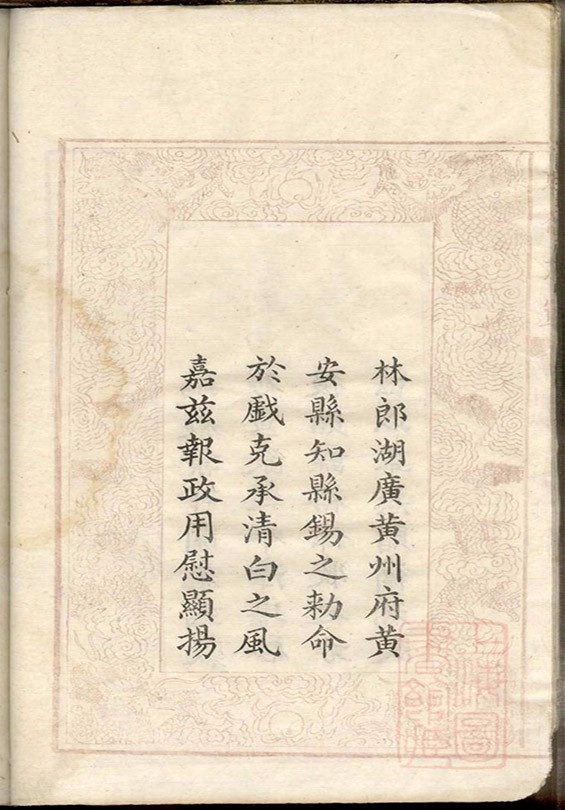 林郎湖廣黃州府黃
安縣知縣錫之勅命
於戯克承清白之風
嘉兹報政用慰顯揚